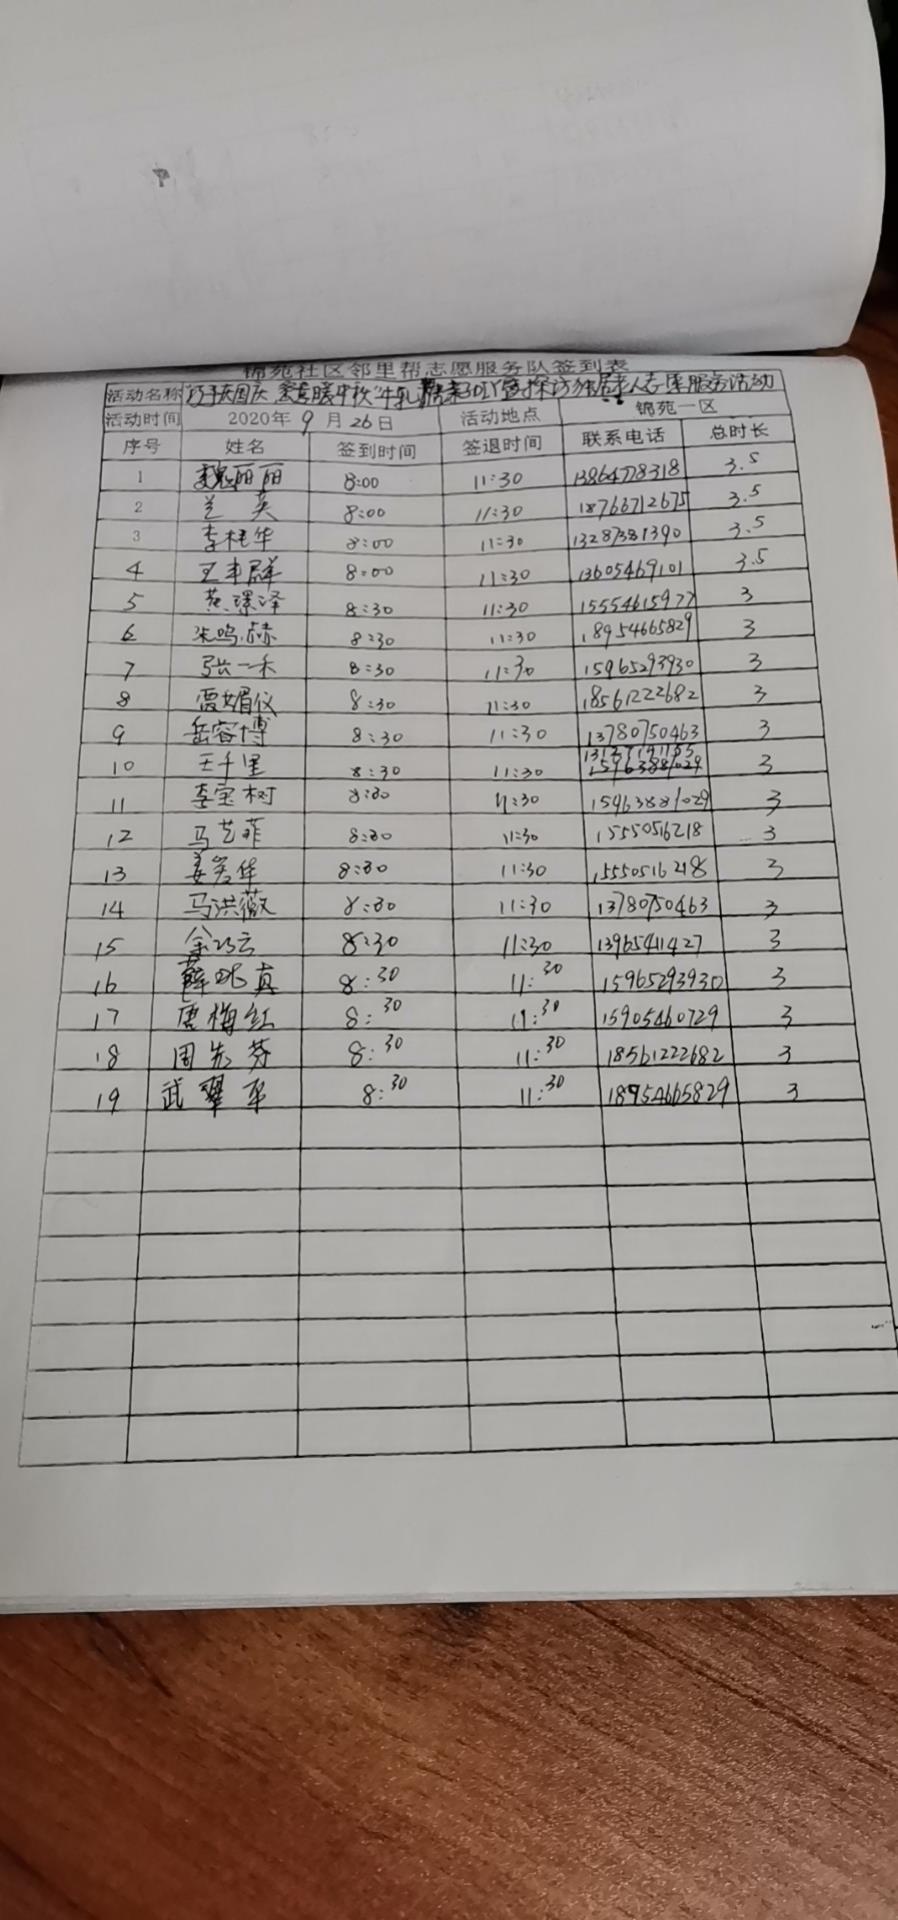 锦苑社区邻里帮志愿服务队签到表
活动名称 "巧手庆国庆 浓意暖中秋"牛轧糖DIY暨探访独居老人志愿服务活动
活动时间 2020年9月26日 活动地点 锦苑一区
序号 姓名 签到时间 签退时间 联系电话 总时长
1 魏丽丽 8:00 11:30 13864778318 3.5
2 兰英 8:00 11:30 18766712675 3.5
3 李桂华 8:00 11:30 13287381390 3.5
4 王丰群 8:00 11:30 13605469101 3.5
5 黄璟泽 8:30 11:30 15554615977 3
6 朱鸣赫 8:30 11:30 18954665829 3
7 张一禾 8:30 11:30 15965293930 3
8 贾媚仪 8:30 11:30 18561222682 3
9 岳容博 8:30 11:30 13780750463 3
10 王千里 8:30 11:30 3
11 李宝树 8:30 11:30 15963881029 3
12 马艺菲 8:30 11:30 15550516218 3
13 姜秀华 8:30 11:30 15550516218 3
14 马洪薇 8:30 11:30 13780750463 3
15 徐巧云 8:30 11:30 1396541427 3
16 薛 真 8:30 11:30 15965293930 3
17 唐梅红 8:30 11:30 15905460729 3
18 周先芬 8:30 11:30 18561222682 3
19 武翠 8:30 11:30 18954665829 3